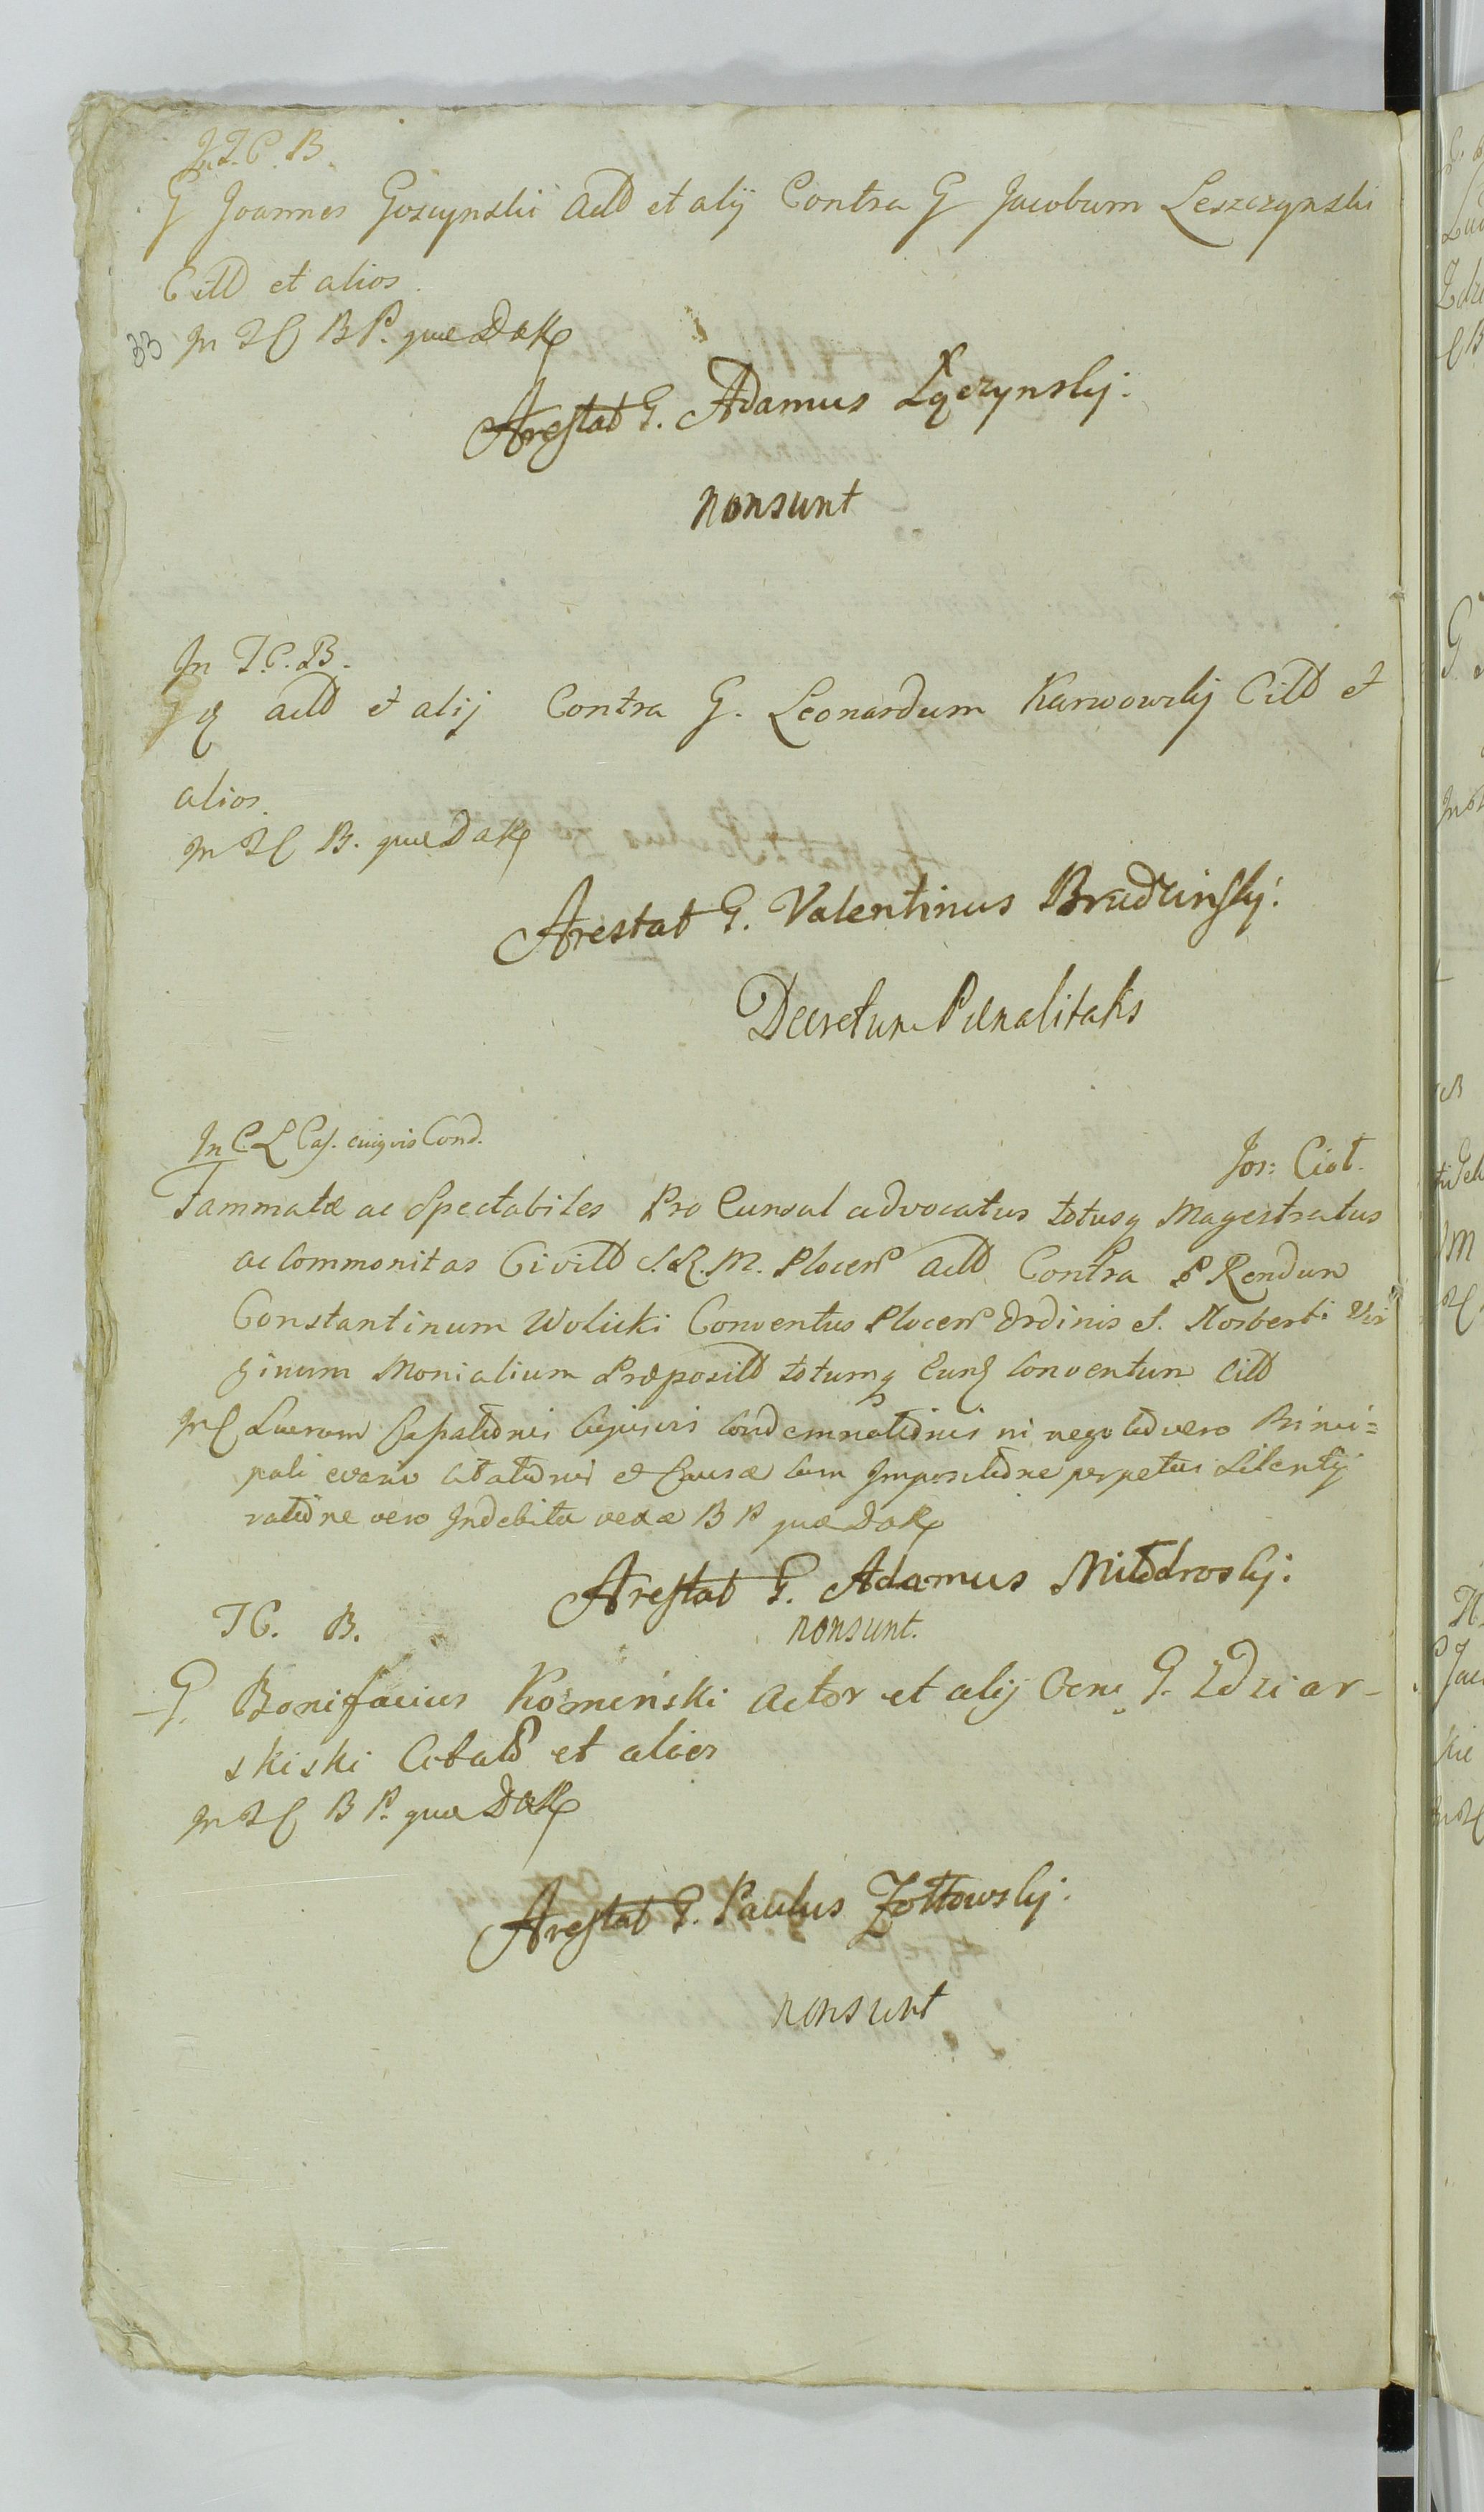 In T. C. B.
G Joannes Goscynski Actt et alij Contra G Jacobum Leszczynski
Citt et alios.
33 In TC B P. quae Dak
Arestat G. Adamus Łączynsky:
nonsunt
In T.C.B.
G actt et alij Contra G. Leonardum Karwowskj Citt et
alios.
In TC B. quae Dak
Arestat G. Valentinus Brudzinsky:
Decretum Paenalitatis
In C. L Cas. cuiqvis Cond.
Jos: Ciat.
Fammatae ac Spectabiles Pro Cunsul advocatus totusq Magestratus
ac Commonitas Civitt S.R.M. Plocen Actt Contra P Rendum
Constantinum Wolicki Conventus Plocen Ordinis S. Norberti Vir
ginum Monialium Praepositt totumq Eund Conventum Citt
In C Lucrum Cassationis Cujusvis Condemnationis in nego tio vero Princi=
pali evasio Citationis et Causae Cum Impositione perpetui Silentij
ratione vero Indebitae vexae B P quae Dak
Arestat G. Adamus Miłodrosky:
T C. B.
nonsunt.
G. Bonifacius Koźmiński Actor et alij Cona G. Zdziar-
skiski Citatt et alios
In TC B P. quae Dak
Arestat G. Paulus Zołtowsky:
nonsunt